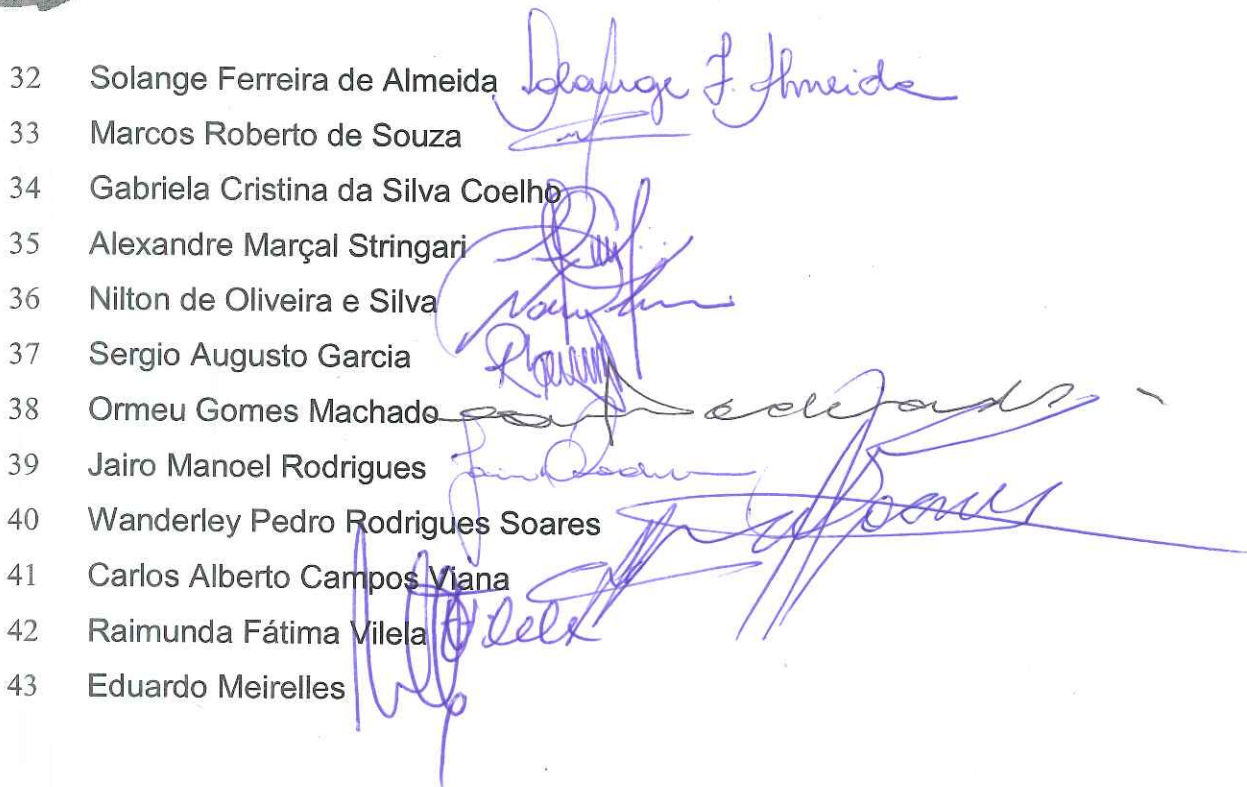 32 Solange Ferreira de Almeida Solange F. Almeida
33 Marcos Roberto de Souza
34 Gabriela Cristina da Silva Coelho
35 Alexandre Marçal Stringari
36 Nilton de Oliveira e Silva
37 Sergio Augusto Garcia
38 Ormeu Gomes Machado
39 Jairo Manoel Rodrigues
40 Wanderley Pedro Rodrigues Soares
41 Carlos Alberto Campos Viana
42 Raimunda Fátima Vilela Vilela
43 Eduardo Meirelles